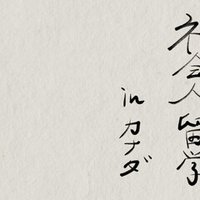 社会人留学
in カナダ